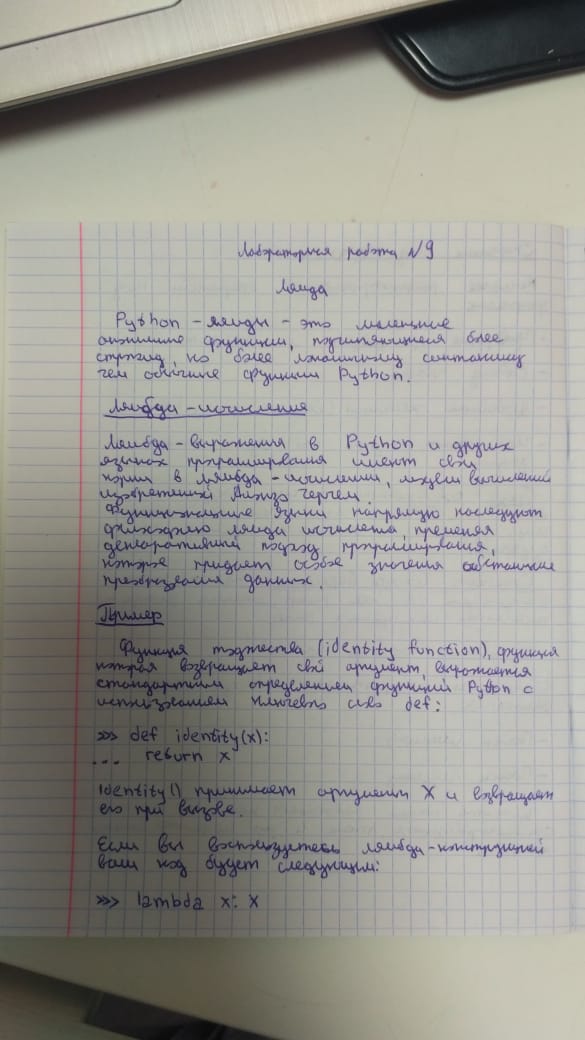 Лабораторная работа №9
Лямда
Python - лямды - это маленькие
анонимные функции, подчиняющиеся более
строгому, но более лаконичному синтаксису
чем обычные функции Python.
Лямбда-исчисления
Лямбда-выражения в Python и других
языках программирования имеют свои
корни в лямбда-исчислении, модели вычислений
изобретённой Алонзо Чёрчем.
Функциональные языки напрямую наследуют
философию лямда исчислета, применяя
декларативный подход программирования,
которое придает особое значения абстракции
преобразования данных.
Пример
Функция тождества (identity function), функция
которая возвращает свой аргумент, выражается
стандартным определением функции Python с
использованием ключевого слово def:
>>> def identity(x):
... return x
Identity() принимает аргумент X и возвращает
его при вызове.
Если вы воспользуетесь лямбда-конструкцией
ваш код будет следующим:
>>> lambda x: x